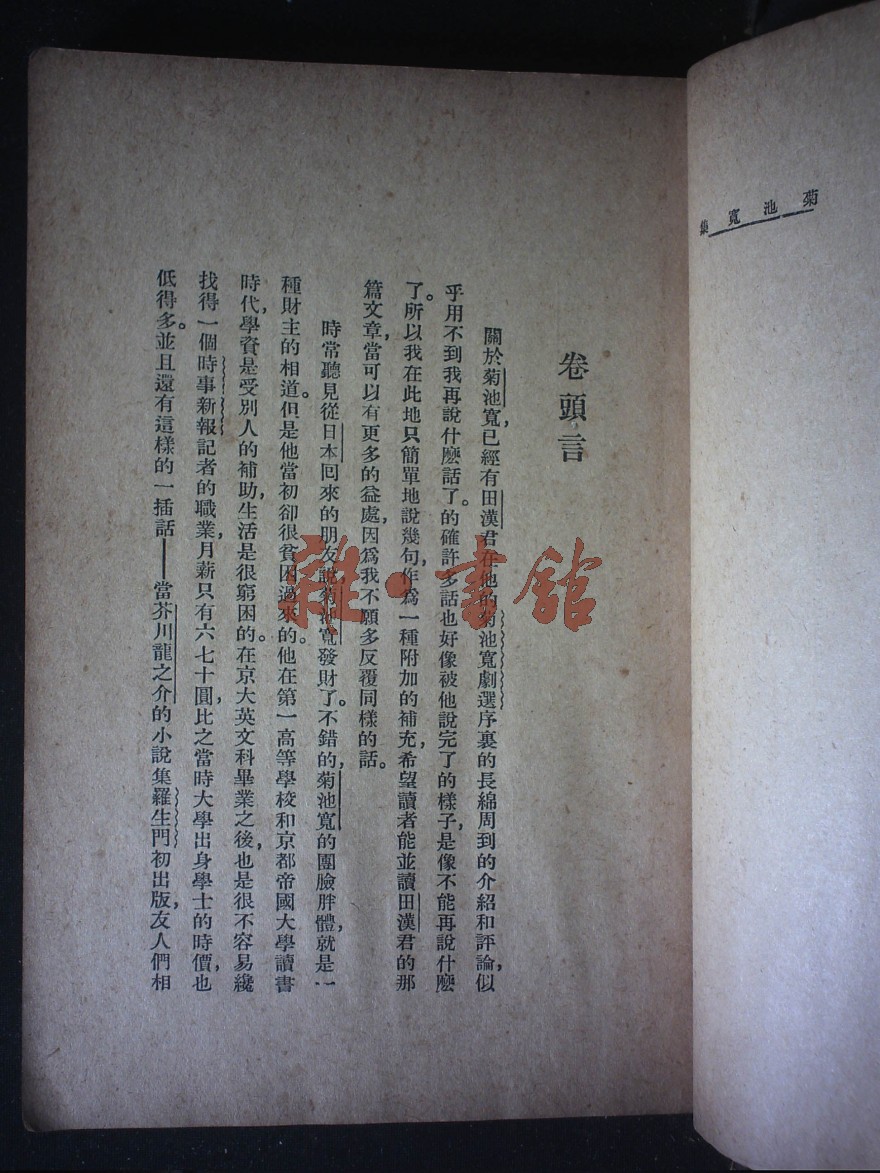 菊池寬集
卷頭言
關於菊池寬,已經有田漢君在他的菊池寬劇選序裏的長綿周到的介紹和評論,似
乎用不到我再說什麽話了。的確許多話也好像被他說完了的樣子,是像不能再說什麽
了。所以我在此地只簡單地說幾句,作爲一種附加的補充,希望讀者能並讀田漢君的那
篇文章,當可以有更多的益處,因爲我不願多反覆同樣的話。
時常聽見從日本回來的朋友說,菊池寬發財了。不錯的,菊池寬的團臉胖體,就是一
種財主的相道。但是他當初卻很貧困過來的。他在第一高等學校和京都帝國大學讀書
時代,學資是受別人的補助,生活是很窮困的。在京大英文科畢業之後,也是很不容易纔
找得一個時事新報記者的職業,月薪只有六七十圓,比之當時大學出身學士的時價,也
低得多。並且還有這樣的一插話——當芥川龍之介的小說集羅生門初出版,友人們相
雜·書館